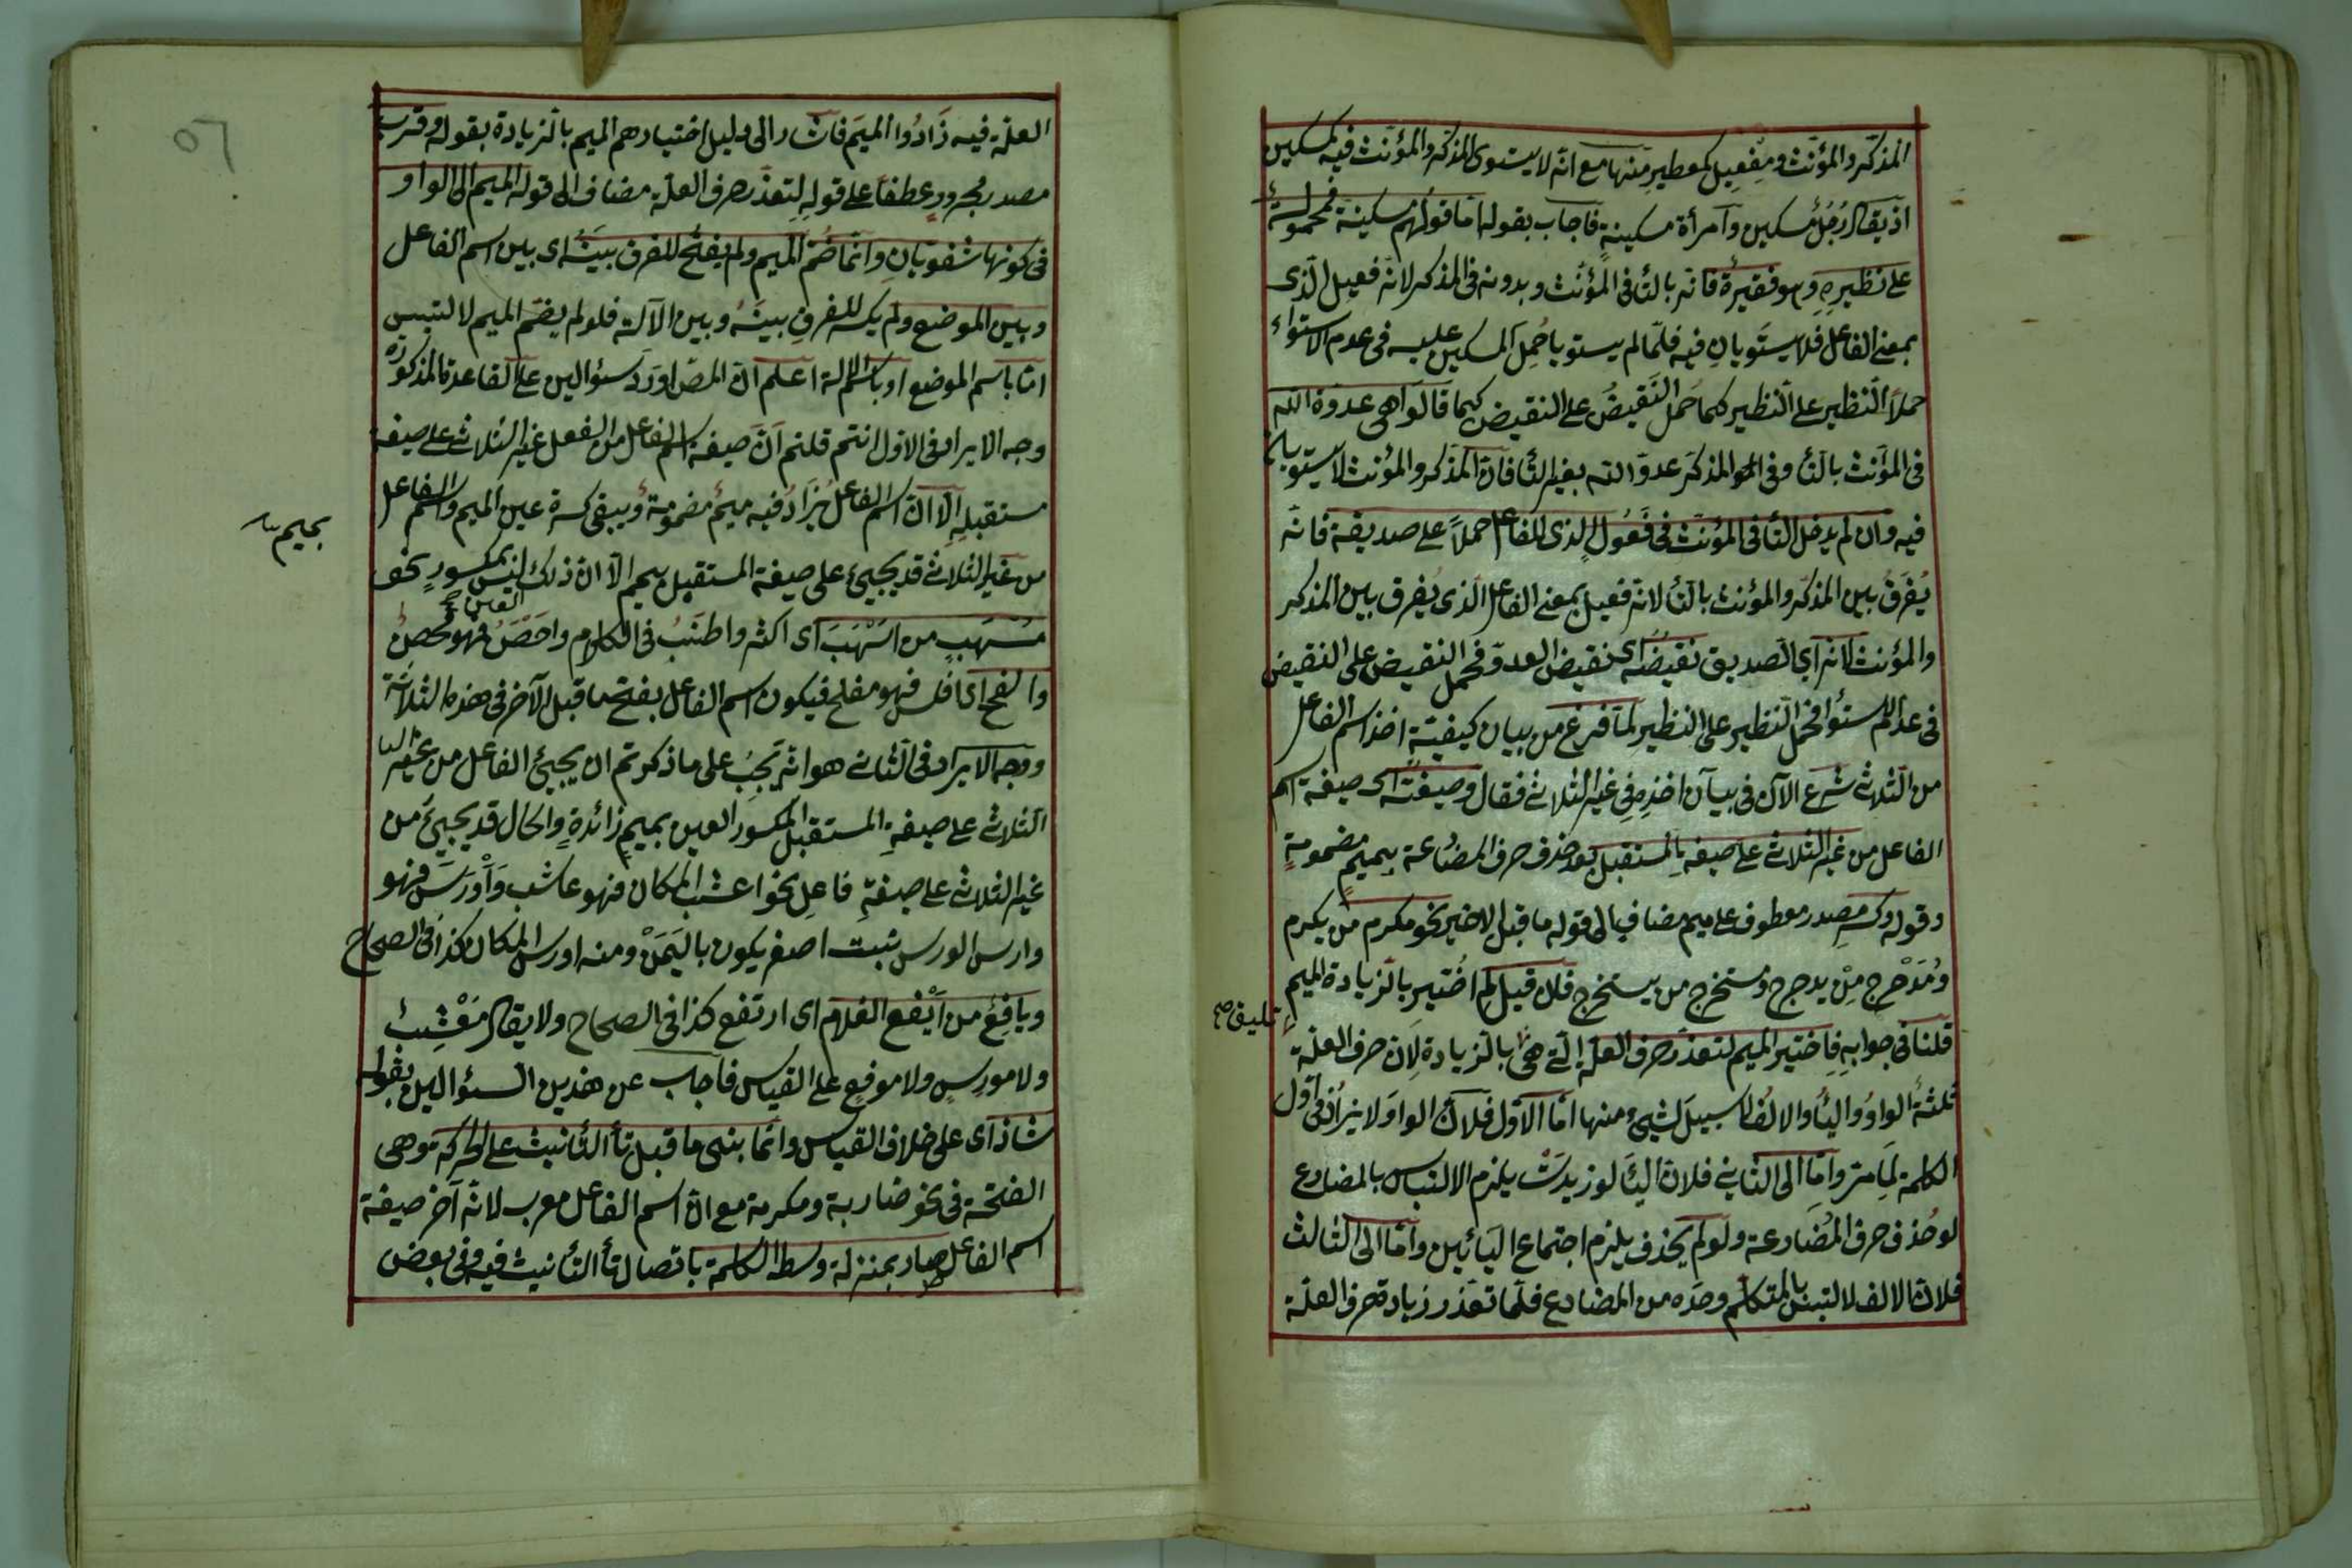 المذكّر والمؤنّث ومِفعيل كمعطير منها مع انّه لا يستوى المذكّر والمؤنّث فيه كمسكين
اذ يقال رجُل مسكين وامرأة مسكينة فاجاب بقوله امّا قولهم مسكينة فمحمولة
على نظيره وهو فقيرة فانّه بالتّأ فى المؤنّث وبدونه فى المذكر لانّه فعيل الّذى
بمعنى الفاعل فلا يستويان فيه فلمّا لم يستويا حُمِل المسكين عليه فى عدم الاستواء
حملاً النّظير على النّظير كما حُمل النّقيض على النقيض كما قالوا هى عدوّة الله
فى المؤنث بالتّأ وفى المذكر عدوّ الله بغير التّأ فانّ المذكر والمؤنث لا يستويان
فيه وان لم يدخل التّأ فى المؤنّث فى فَعُول الّذى للفاعل حملاً على صديقة فانّه
يُفرَق بين المذكّر والمؤنث بالتّأ لانّه فعيل بمعنى الفاعل الّذى يُفرق بين المذكر
والمؤنث لانّه اى الصديق نقيضُه اى نقيض العدوّ فحمل النقيض على النقيض
فى عدم الاستوأ فحمل النّظير على النظير لمّا فرغ من بيان كيفيّة اخذ اسم الفاعل
من الثّلاثى شرع الآن فى بيان اخذه فى غير الثلاثى فقال وصيغته اى صيغة اسم
الفاعل من غير الثلاثى على صيغة المستقبل بعد حذف حرف المضارعة بميم مضمومة
وقوله وكسر مصدر معطوف على ميم مضاف الى قوله ما قبل الاخير نحو مكرم من يكرم
ومُدَحْرِج مِن يدحرج ومستخرج من يستخرج فان قيل لم اختير بالزيادة الميم
قلنا فى جوابه فاختير الميم لتعذّر حرف العلّة الّتى هى بالزيادة لانّ حرف العلّة
ثلثة الواو واليأ والالف لا سبيل لشىء منها امّا الاوّل فلانّ الواو لا يزاد فى اوّل
الكلمة لما مر وامّا الى الثانى فلانّ اليأ لو زيدت يلزم الالتباس بالمضارع
لو حُذف حرف المُضارعة ولو لم يحذف يلزم اجتماع اليائين وامّا الى الثالث
فلانّ الالف لا التبس بالمتكلّم وحده من المضارع فلمّا تعذّر زيادة حرف العلّة
العلّة فيه زَادُوا الميم فاشار الى دليل اختيارهم الميم بالزيادة بقوله وقرب
مصدر مجرور عطفا على قوله لتعذّر حرف العلّة مضاف الى قوله الميم الى الواو
فى كونها شفويتان وانّما ضُمّ الميم ولم يفتح للفرق بينَهُ اى بين اسم الفاعل
وبين الموضع ولم يكسر للفرق بينَهُ وبين الآلة فلو لم يضمّ الميم لالتبس
امّا باسم الموضع او باسم الالة اعلم انّ المصّ اورَدَ سئوالين على القاعدة المذكورة
وجه الايراد فى الاوّل انتم قلتم انّ صيغة اسم الفاعل من الفعل غير الثلاثى على صيغة
مستقبله الّا انّ اسم الفاعل يُزاد فيه ميمُ مضمومةُ ويبقى كسرة عين الميم واسم الفاعل
من غير الثلاثى قد يجيئ على صيغة المستقبل بميم الّا انّ ذلك ليس بمكسور نحو
العين
مُسْهَب من اَسْهَبَ اى اكثر واطنَبَ فى الكلام واحْصَنَ فهو محصَنُ
والفج اى افلس فهو مفلج فيكون اسم الفاعل بفتح ما قبل الآخر فى هذه الثلاثة
ووجه الايراد فى الثّانى هو انّه يجب على ما ذكرتم ان يجيئ الفاعل من غير
الثلاثى على صيغة المستقبل المكسور العين بميم زائدة والحال قد يجيئ من
غير الثلاثى على صيغة فاعل نحو اعشب المكان فهو عاشب وَاَوْرَسَ فهو
وارس الورس نبت اصفر يكون باليَمَن ومنه اورس المكان كذا فى الصحاح
ويافِعُ من اَيْفَع الغلام اى ارتفع كذا فى الصحاح ولا يقال مُعْشِبُ
ولا مورسٍ ولا موفع على القياس فاجاب عن هذين السئوالين بقوله
شاذ اى على خلاف القياس وانّما بنى ما قبل تأ التّأنيث على الحركة وهى
الفتحة فى نحو ضاربة ومكرمة مع انّ اسم الفاعل معرب لانّه آخر صيغة
اسم الفاعل صار بمنزلة وسط الكلمة باتصال تأ التّأنيث فيه وفى بعض
بميم